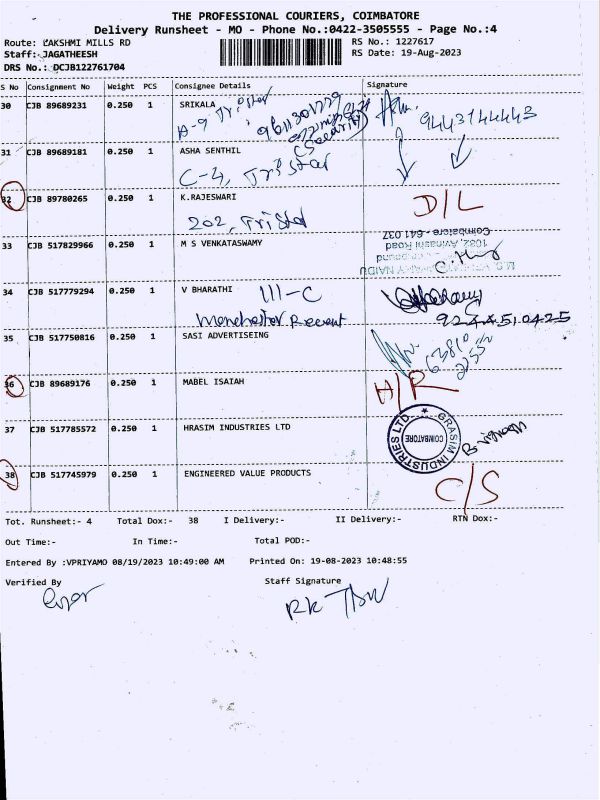 THE PROFESSIONAL COURIERS, COIMBATORE
Delivery Runsheet - MO - Phone No.:0422-3505555 - Page No.:4
Route: LAKSHMI MILLS RD RS No.: 1227617
Staff: JAGATHEESH RS Date: 19-Aug-2023
DRS No.: DCJB122761704
S No Consignment No Weight PCS Consignee Details Signature
30 CJB 89689231 0.250 1 SRIKALA
A-9 Tristar 9443144443
31 CJB 89689181 0.250 1 ASHA SENTHIL
C-4, Tristar
32 CJB 89780265 0.250 1 K.RAJESWARI D/L
202, Tristar
33 CJB 517829966 0.250 1 M S VENKATASWAMY
Coimbatore - 641 037
1082, Avinashi Road
34 CJB 517779294 0.250 1 V BHARATHI III-C
Manchester Regent
35 CJB 517750816 0.250 1 SASI ADVERTISEING
36 CJB 89689176 0.250 1 MABEL ISAIAH H/R
37 CJB 517785572 0.250 1 HRASIM INDUSTRIES LTD
GRASIM INDUSTRIES LTD. COIMBATORE
38 CJB 517745979 0.250 1 ENGINEERED VALUE PRODUCTS C/S
Tot. Runsheet:- 4 Total Dox:- 38 I Delivery:- II Delivery:- RTN Dox:-
Out Time:- In Time:- Total POD:-
Entered By :VPRIYAMO 08/19/2023 10:49:00 AM Printed On: 19-08-2023 10:48:55
Verified By Staff Signature